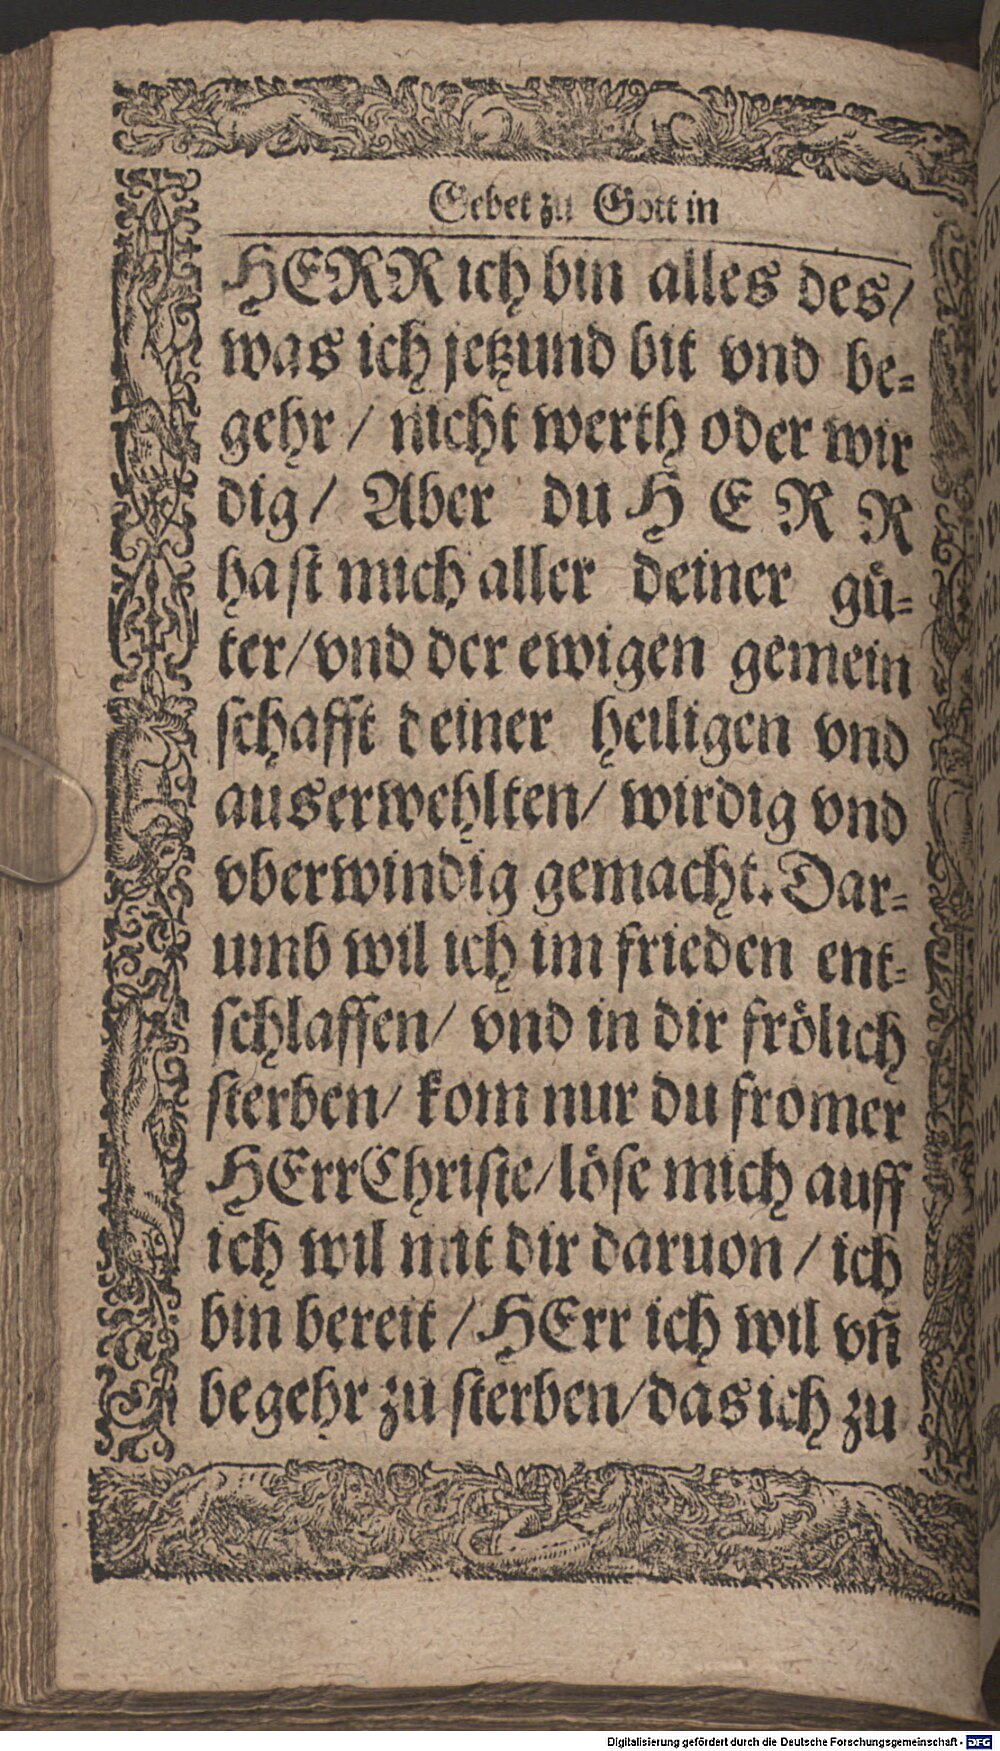 Gebet zu Gott in
HERR ich bin alles des/
was ich jetzund bit vnd be-
gehr / nicht werth oder wir
dig / Aber du H E R R
hast mich aller deiner gü-
ter/vnd der ewigen gemein
schafft deiner heiligen vnd
auserwehlten/ wirdig vnd
vberwindig gemacht. Dar-
umb wil ich im frieden ent-
schlaffen/ vnd in dir frölich
sterben/ kom nur du fromer
HErr Christe/ löse mich auff
ich wil mit dir daruon / ich
bin bereit / HErr ich wil vñ
begehr zu sterben/das ich zu
Digitalisierung gefördert durch die Deutsche Forschungsgemeinschaft - DFG